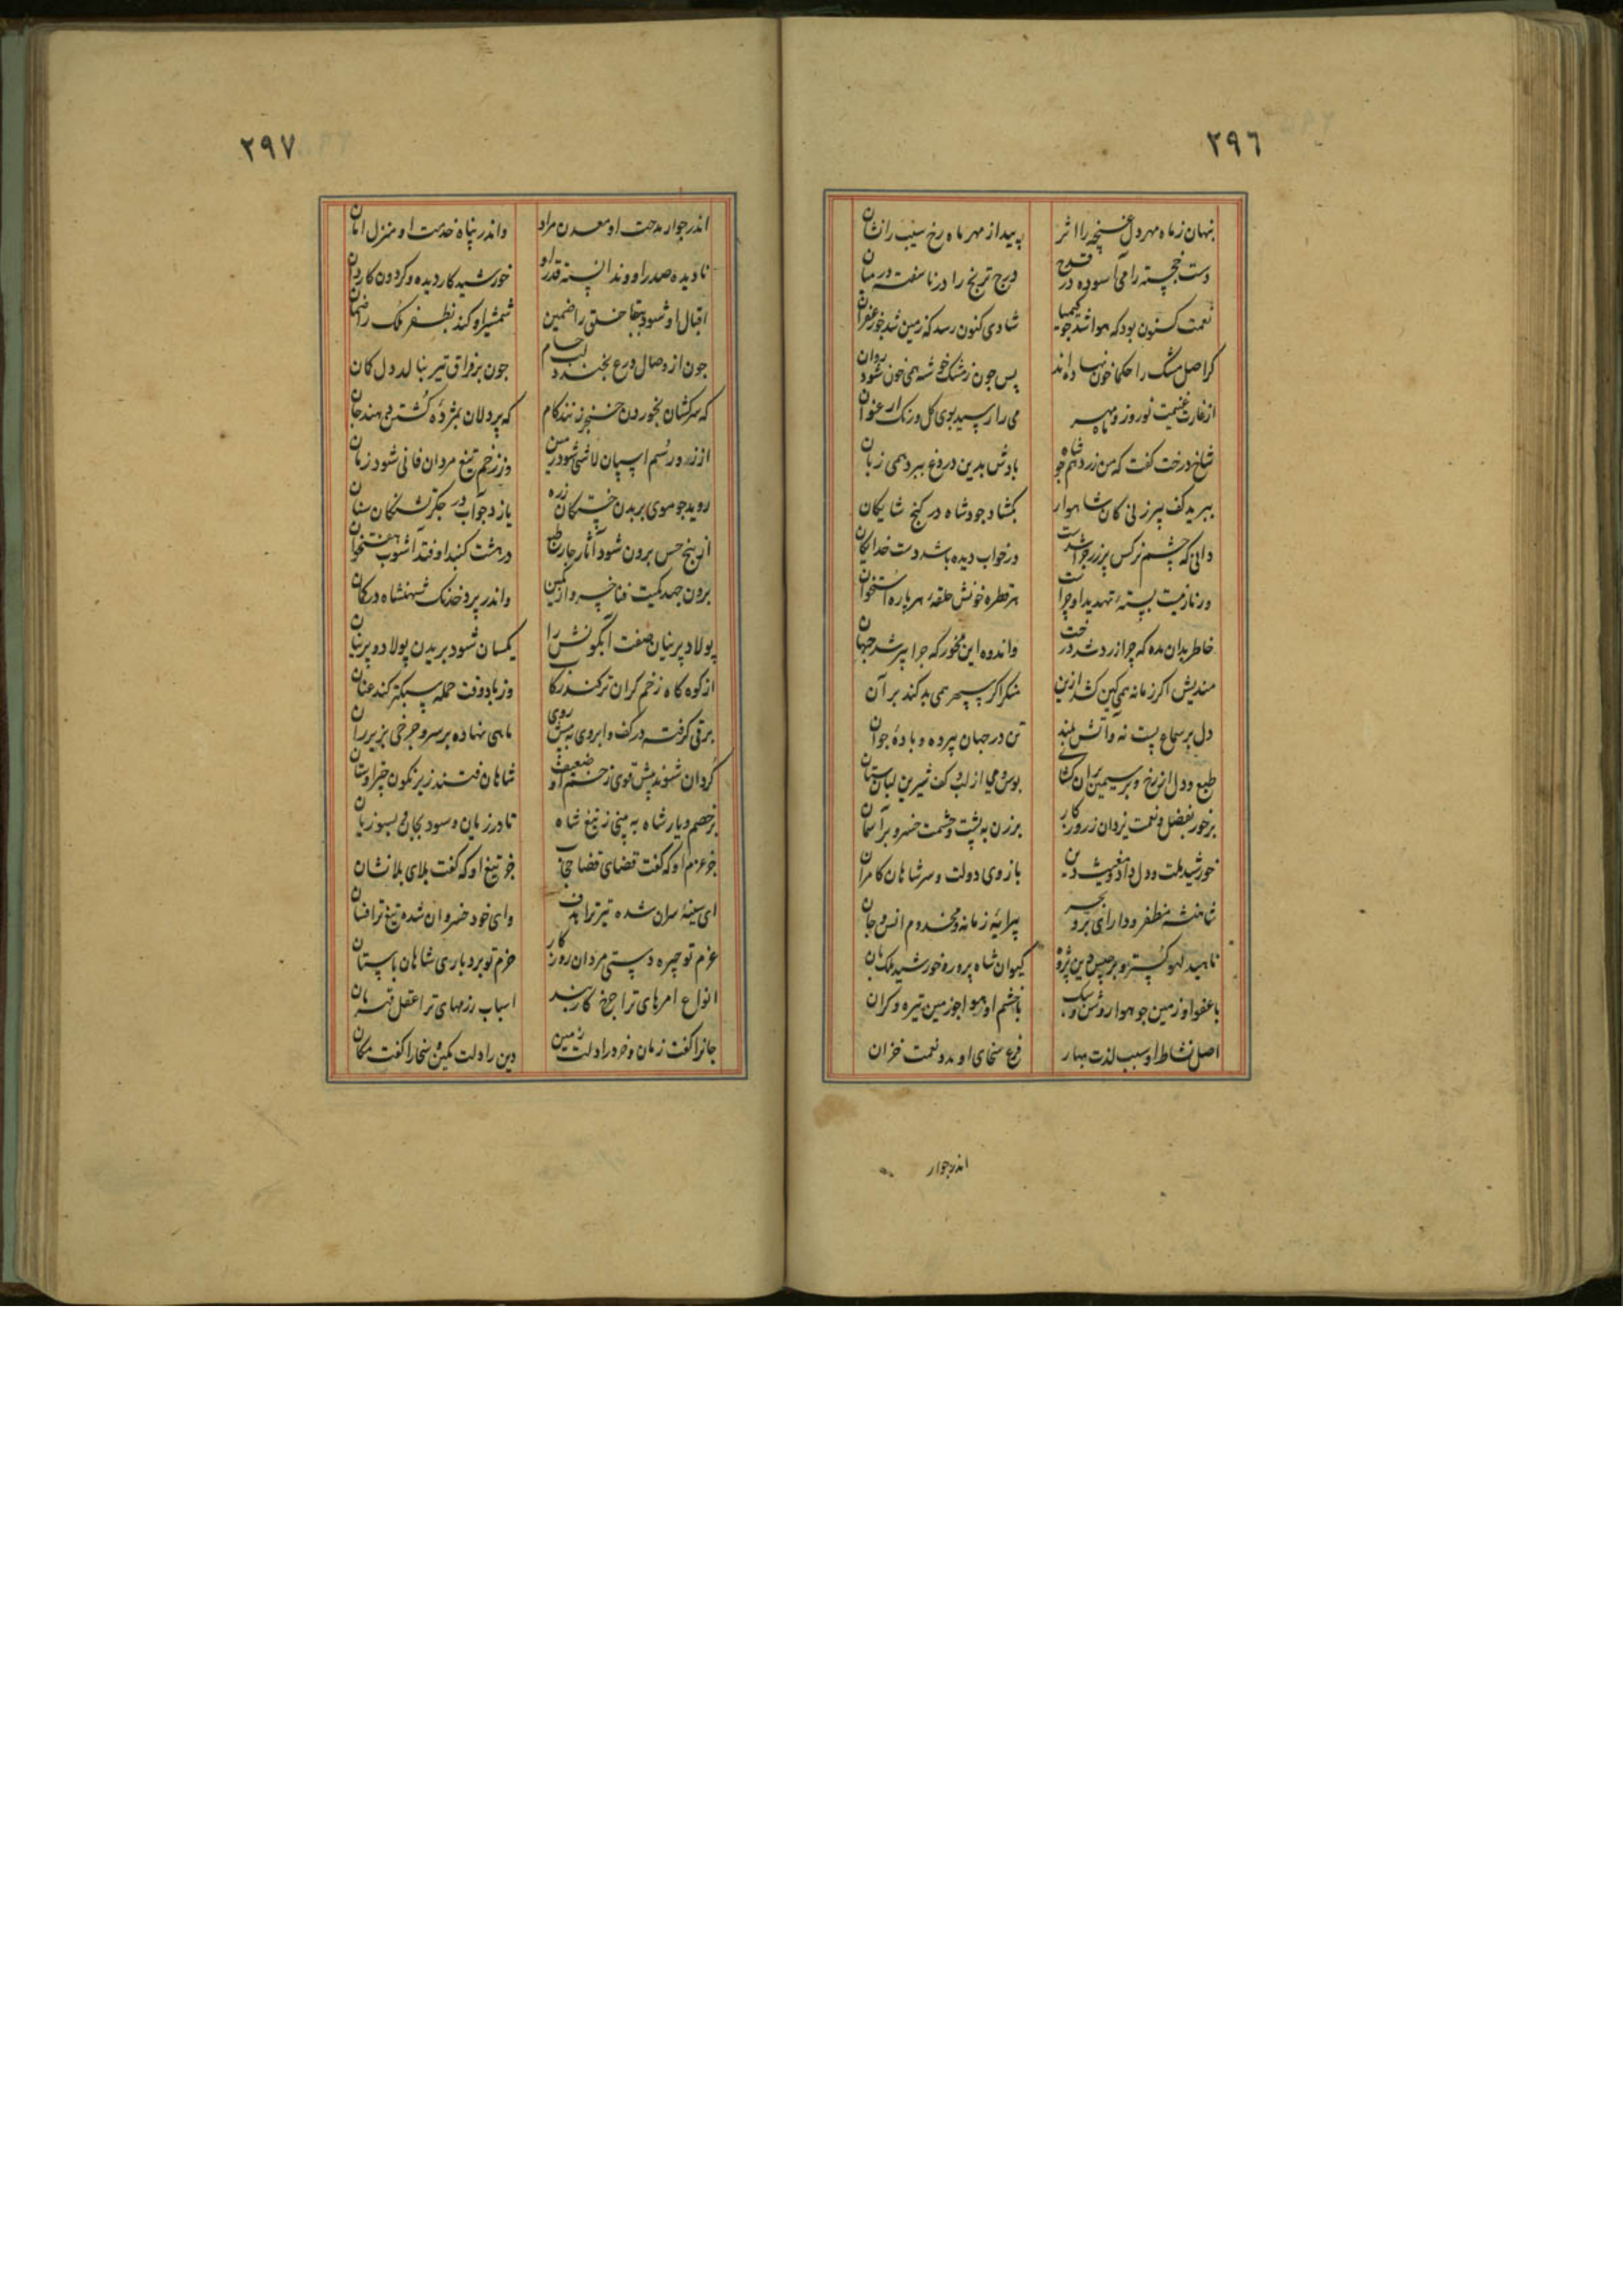 ٢٩٦
پنهان ز ماه مهر دل غنچه را اثر پیدا ز مهر ماه رخ سیب را نشان
دست خجسته را می آسوده در قدح درج ترنج را در ناسفته در میان
نعمت کنون بود که هوا شد جو کیمیا شادی کنون رسد که زمین شد جو زعفران
کر اصل مشک را حکما خون نهاده اند پس جون ز رشک خوشه همی خون شود روان
از غارت غنیمت نوروز و ماه مهر می را رسید بوی کل و رنک ارغوان
شاخ درخت کفت که من زر دهم جو شاه بادش بدین دروغ ببرد همی زبان
ببرید کف پیرزنی کان شاهوار بکشاد جود شاه در کنج شایکان
دانی که چشم نرکس پر زر جرا شدست در خواب دیده باشد دست خدایکان
ور نار نیست بستهٔ تهدید او چراست هر قطره خونش حلقهٔ هر باره استخوان
خاطر بدان مده که چرا زرد شد درخت واندوه این مخور که جرا پیر شد جهان
مندیش اکر زمانه همی کین کشد ازین منکر اکر سپهر همی بد کند بر آن
دل بر سماع پست نه و آتش بلند تن در جهان پیر ده و بادهٔ جوان
طبع و دل از رخ و بر سیمین بران کشای بوس و می از لب و کف شیرین لبان ستان
برخور بفضل و نعمت یزدان ز روزکار برزن به پشت و حشمت خسرو بر آسمان
خورشید ملت و دول و داد و مغیث دین بازوی دولت و سر شاهان کامران
شاهنشه مظفر و دارای بحر و بر پیرایهٔ زمانه و مخدوم انس و جان
ناهید لهو کستر و برجیس دین پژوه کیوان شاه پرور و خورشید ملک بان
با عفو او زمین جو هوا روشن و سبک با خشم او هوا جو زمین تیره و کران
اصل نشاط او سبب لذت بهار فرع سخای او مدد نعمت خزان
اندر جوار
٢٩٧
اندر جوار مدحت او معدن مراد واندر پناه خدمت او منزل امان
نادیده صدر او و ندانسته قدر او خورشید کار دیده و کردون کاردان
اقبال او شود ببقا خلق را ضمین شمشیر او کند بظفر ملک را ضمان
جون از وصال درع بخندد لب حسام جون بر فراق تیر بنالد دل کمان
که سرکشان بخوردن خنجر زنند کام که پردلان بمژدهٔ کشتن دهند جان
از زور سم اسپان لاشی شود زمین وز زخم تیغ مردان فانی شود زمان
روید جو موی بر بدن خستکان زره یازد جو آب در جکر تشنکان سنان
از پنج حس برون شود آثار جار طبع در هشت کنبد اوفتد آشوب هفتخوان
برون جهد کمیت فنا خسرو از کمین واندر پرد خدنک شهنشاه در کمان
پولاد پرنیان صفت آبکونش را یکسان شود بریدن پولاد و پرنیان
از کوه کاه زخم کران تر کند رکاب وز باد وقت حمله سبکتر کند عنان
برقی کرفته در کف و ابروی به پیش روی ماهی نهاده بر سر و چرخی بزیر ران
کردان شوند پیش قوی زخم او ضعیف شاهان فتند زیر نکون چتر او ستان
بر خصم و یار شاه به بینی ز تیغ شاه تا در زمان و سود بجان و بسوزیان
جز عزم او که کفت قضای قضا حجاب جز تیغ او که کفت بلای بلانشان
ای سینهٔ سران شده تیر ترا هدف وای خود خسروان شده تیغ ترا فسان
عزم تو چیره دستی مردان روزکار حزم تو بردباری شاهان باستان
انواع امرهای ترا چرخ کاربند اسباب رزمهای ترا عقل قهرمان
جانرا کفت زمان و خرد را دلت زمین دین را دلت مکین و سخا را کفت مکان